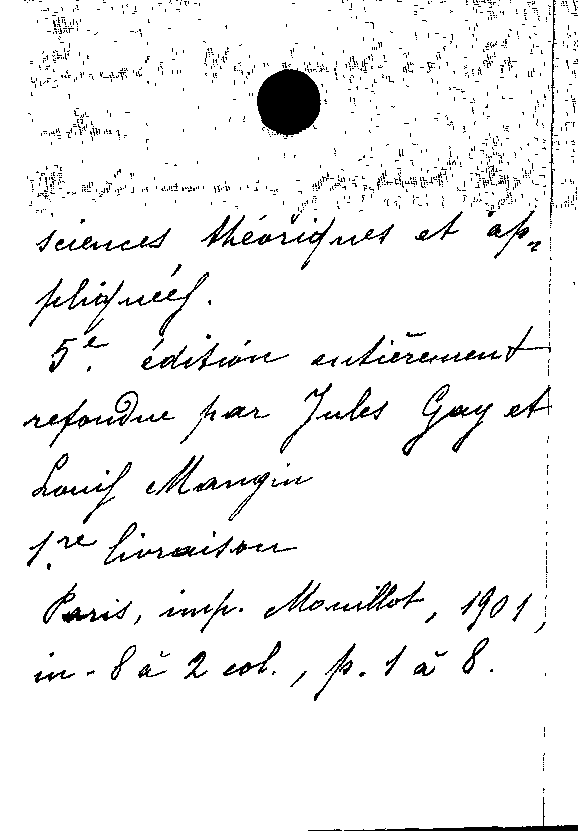 sciences théoriques et ap-
pliquées.
5e. édition entièrement
refondue par Jules Gay et
Louis Mangin
1.re livraison
Paris, imp. Mouillot, 1901,
in-8 à 2 col., p. 1 à 8.